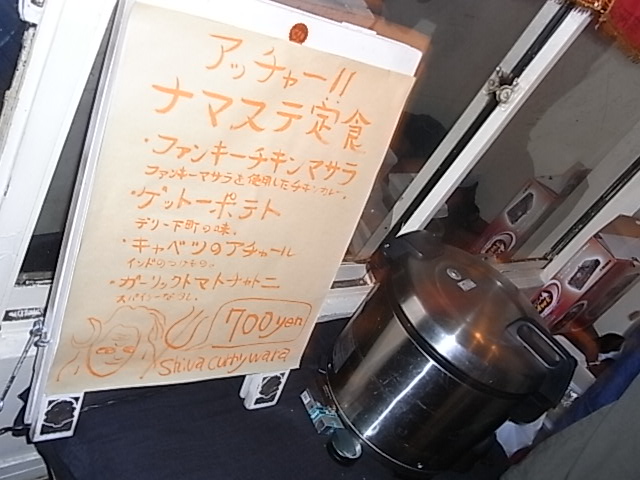 アッチャー!!
ナマステ定食
・ファンキーチキンマサラ
ファンキーマサラを使用したチキンカレー。
・ゲットーポテト
デリー下町の味。
・キャベツのアチャール
インドのつけもの。
・ガーリックトマトチャトニ
スパイシーなつけ。
700yen
Shiva curry wara